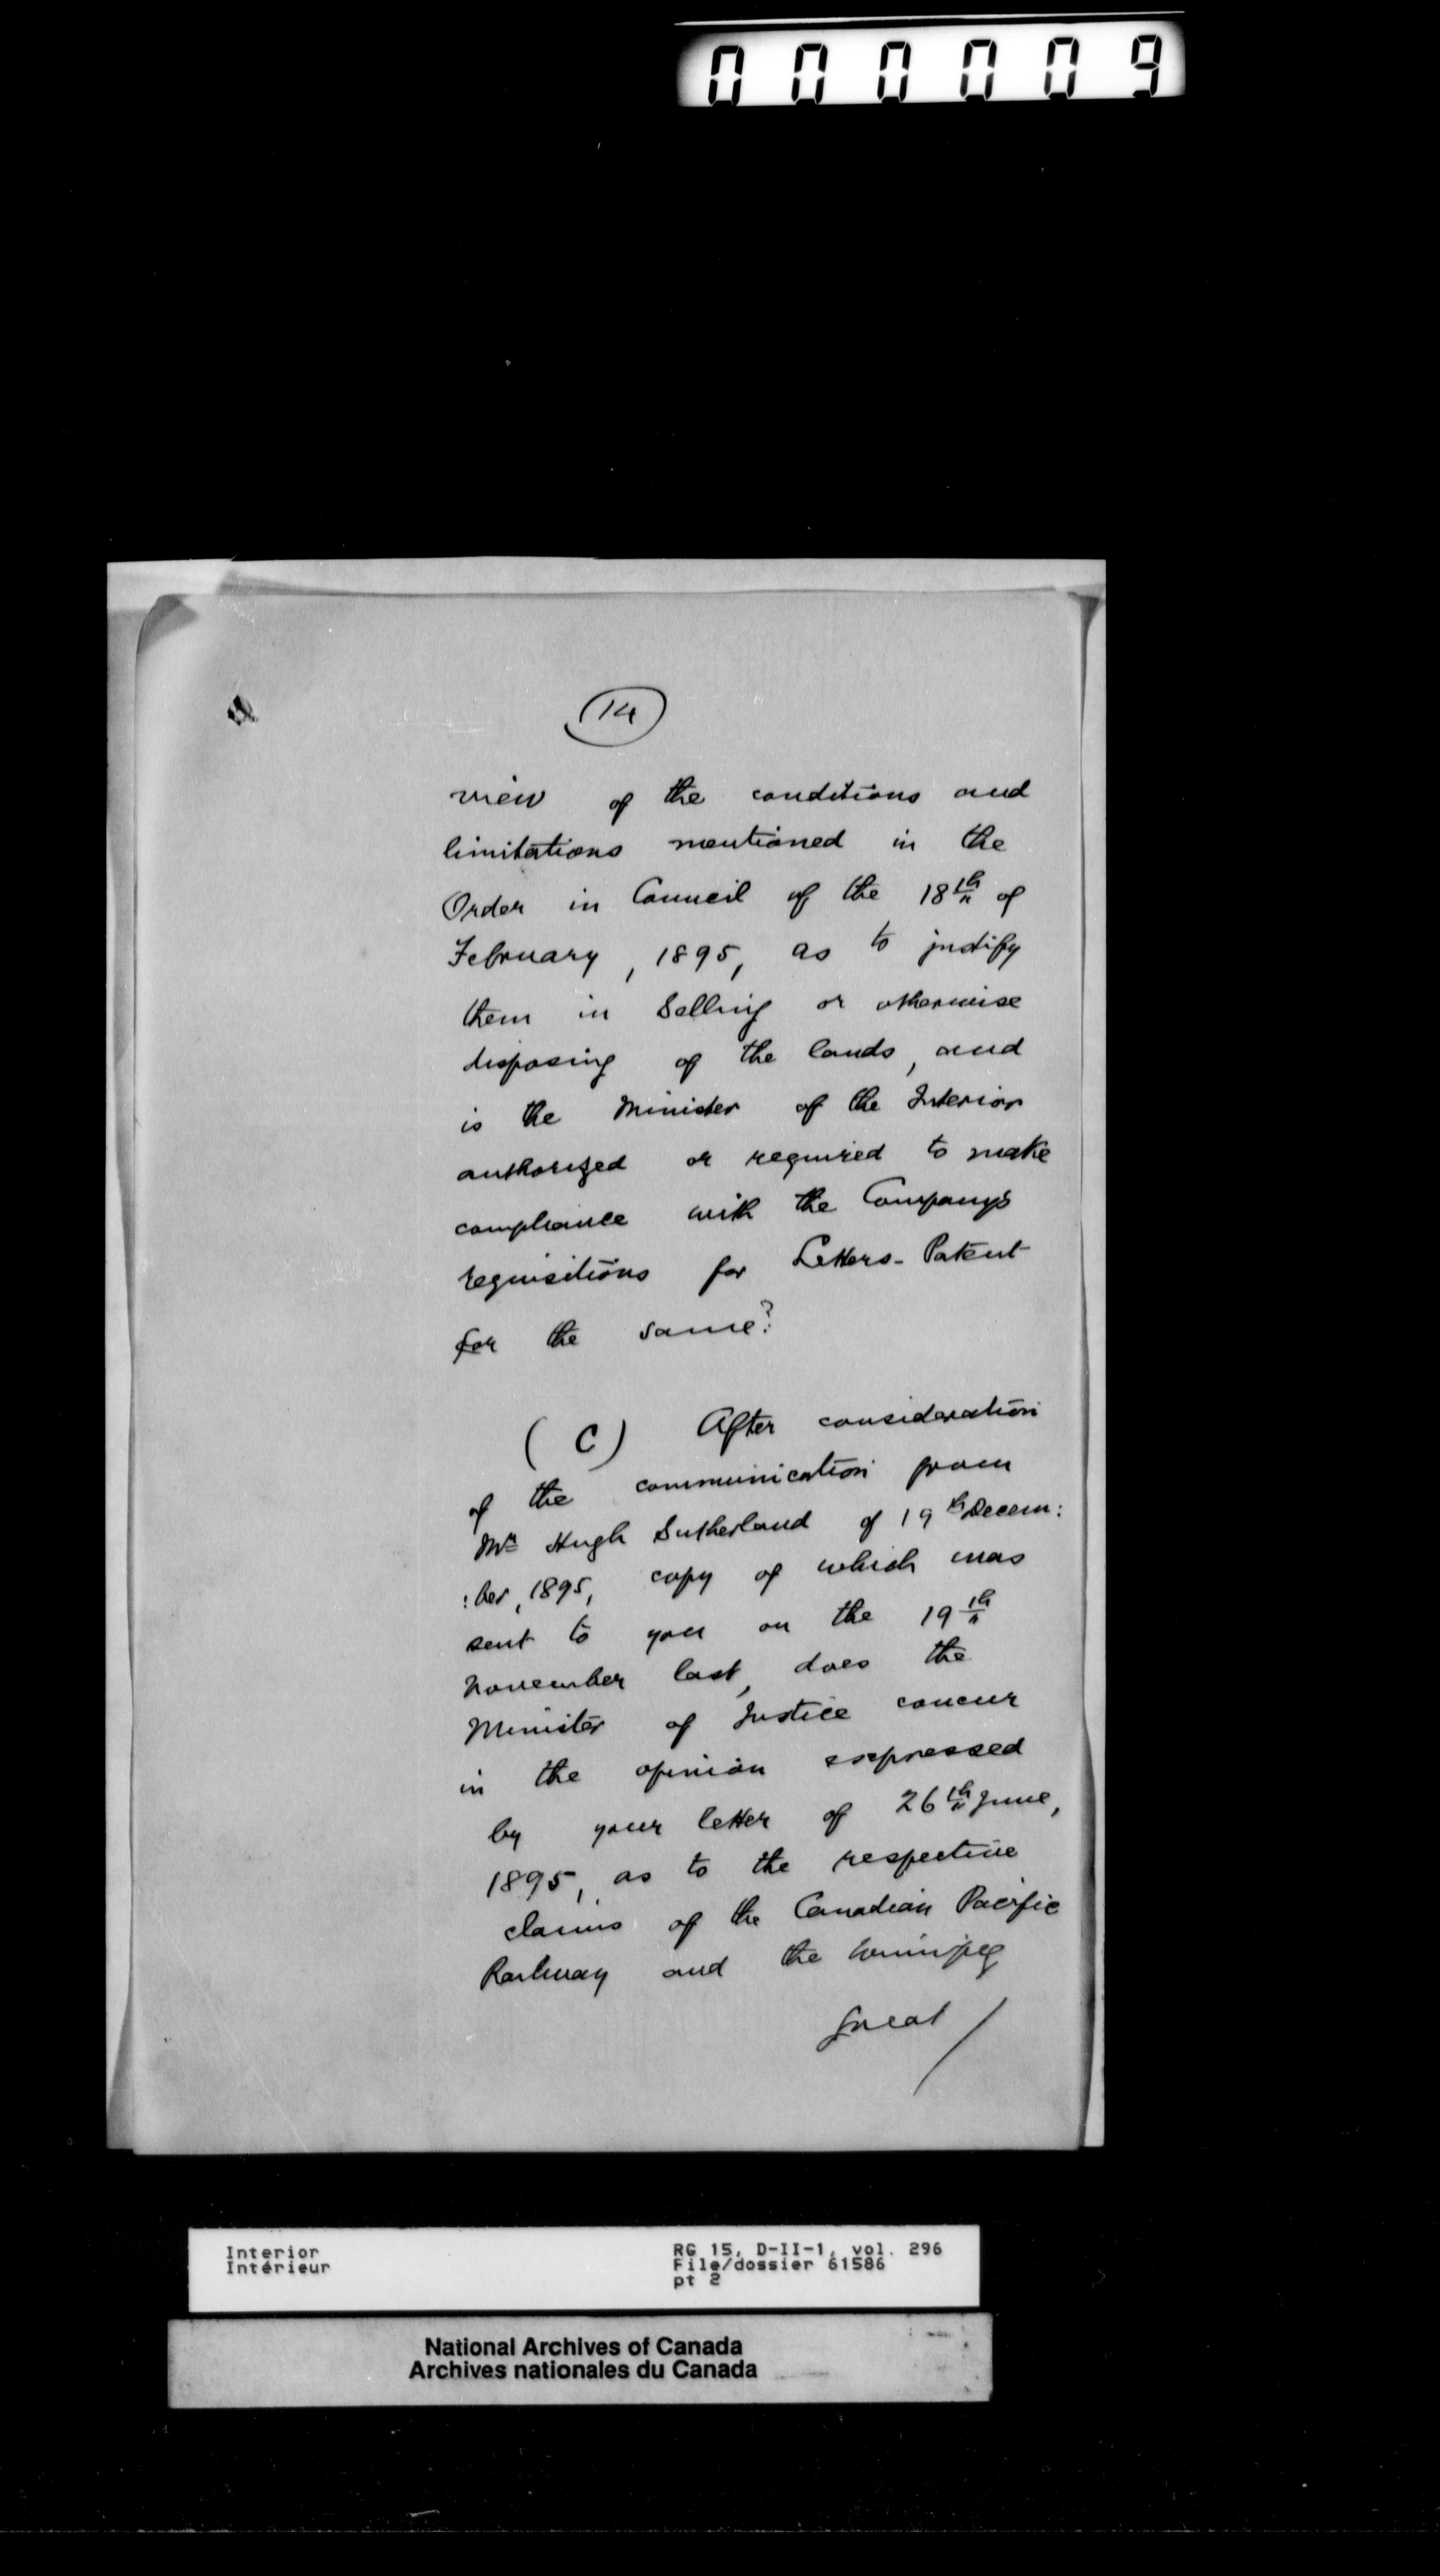 000009
14
view of the conditions and
limitations mentioned in the
Order in Council of the 18th of
February, 1895, as to justify
them in Selling or otherwise
disposing of the lands, and
is the Minister of the Interior
authorized or required to make
compliance with the Companys
requisitions for Letters-Patent
for the same?
(C) After consideration
of the communication from
Mr Hugh Sutherland of 19th Decem:
:ber, 1895, copy of which was
sent to you on the 19th
November last, does the
Minister of Justice concur
in the opinion expressed
by your letter of 26th June,
1895, as to the respective
claims of the Canadian Pacific
Railway and the Winnipeg
Great /
Interior
Intérieur
RG 15, D-II-1, vol. 296
File/dossier 61586
pt 2
National Archives of Canada
Archives nationales du Canada